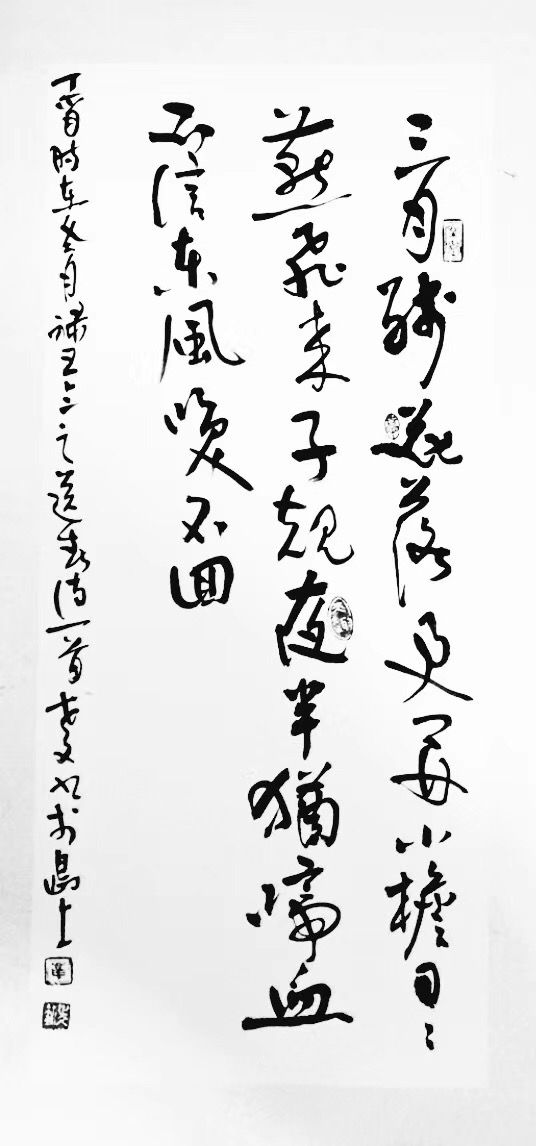 三月殘花落更開小檐日日
燕飛来子規夜半猶啼血
不信東風喚不回
丁酉時在冬月録王令之送春詩一首於島上